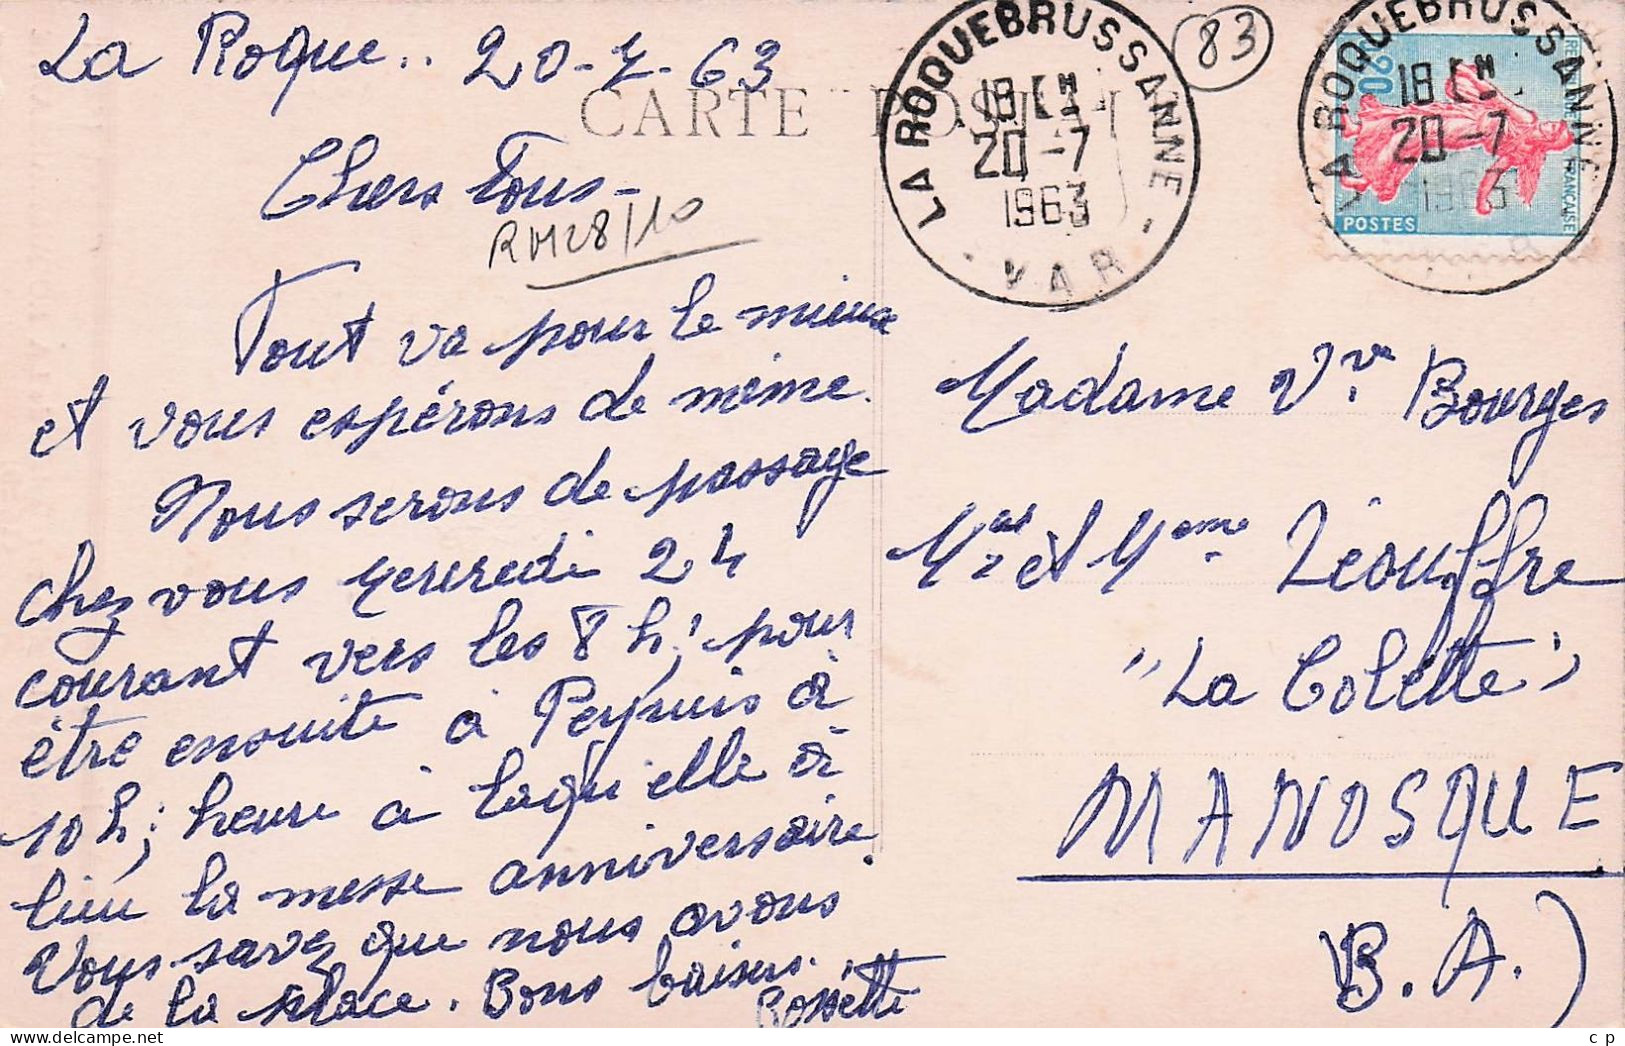 La Roque.. 20-7-63
CARTE POSTALE
Chers Tous -
RM28/10
Tout va pour le mieux
et vous espérons de même.
Nous serons de passage
chez vous vendredi 24
courant vers les 8 h; pour
être ensuite à Peypuis à
10 h; heure à laqu'elle à
lieu la messe anniversaire.
Vous savez que nous avons
de la place. Bons baisers.
Rossette
LA ROQUEBRUSSANNE
18 H
20-7
1963
- VAR -
83
LA ROQUEBRUSSANNE
18 H
20-7
1963
0,20
POSTES
Madame Vve Bourges
et Mme Léouffre
"La Colette"
MANOSQUE
B.A.)
c p